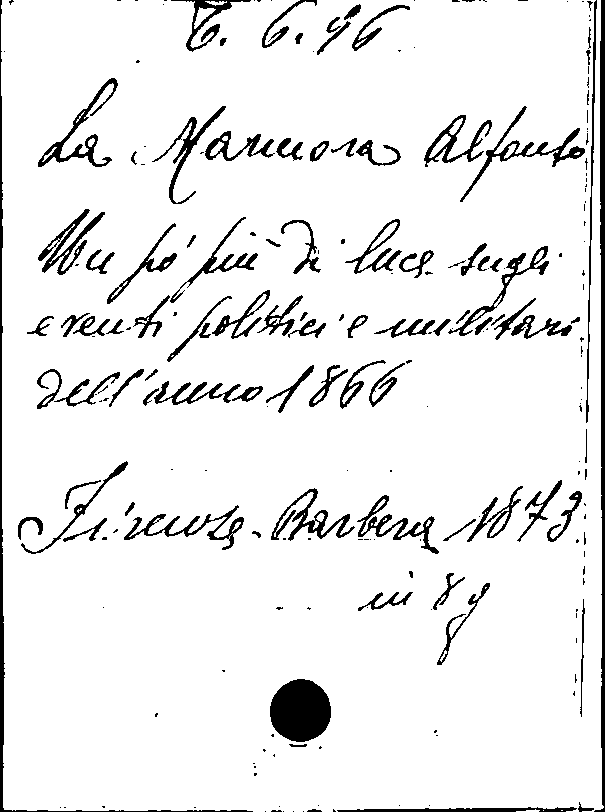 T. 6. 96
La Marmora Alfonso
Un pó piú di luce sugli
eventi politici e militari
dell'anno 1866
Firenze - Barbera 1873
in 8